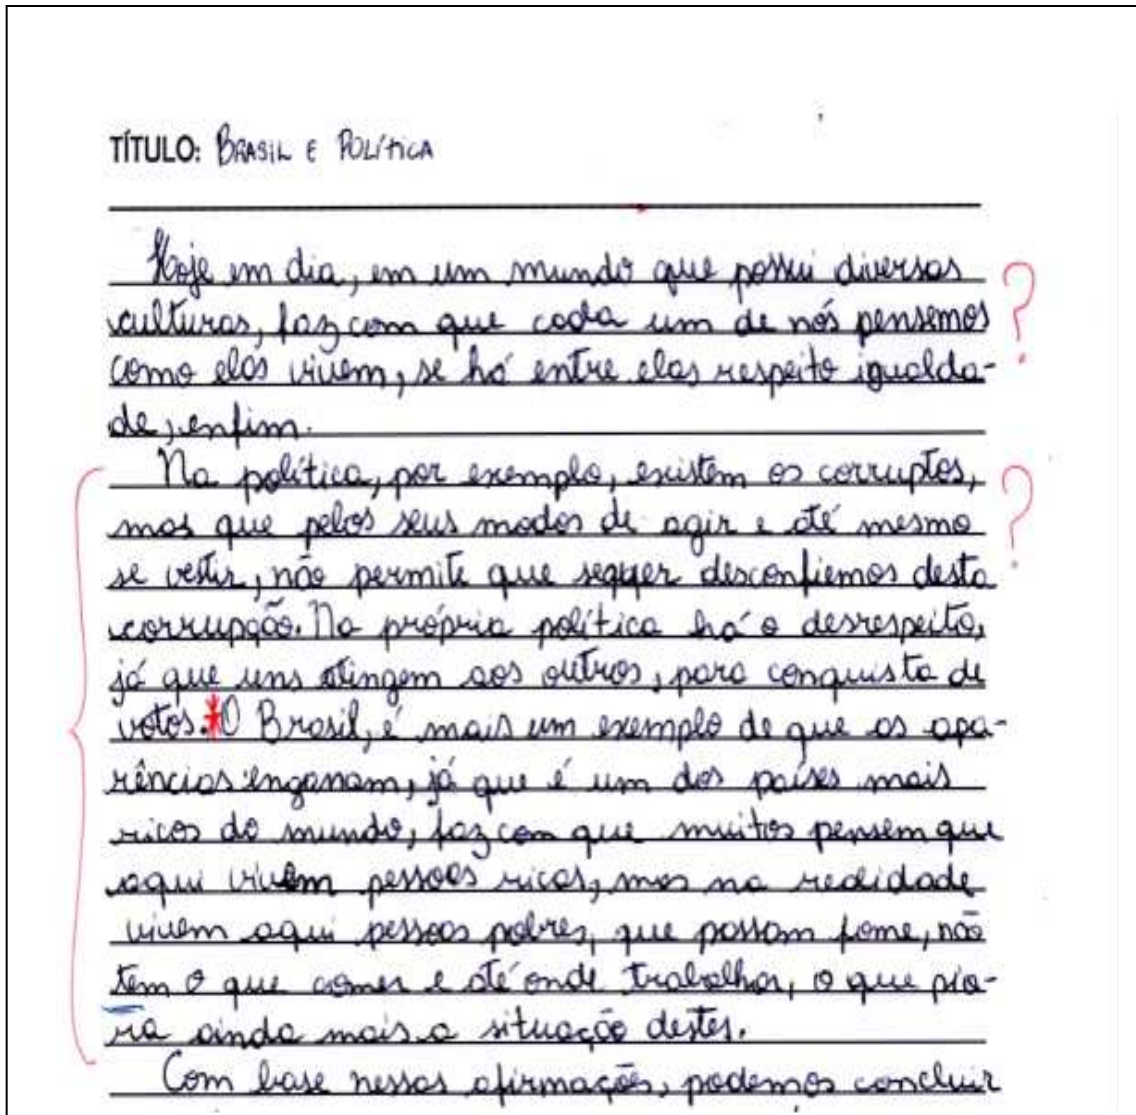 TÍTULO: BRASIL E POLÍTICA
Hoje em dia, em um mundo que possui diversas ?
culturas, faz com que cada um de nós pensemos
como elas vivem, se há entre elas respeito igualda-
de, enfim.
Na política, por exemplo, existem os corruptos, ?
mas que pelos seus modos de agir e até mesmo
se vestir, não permite que sequer desconfiemos desta
corrupção. Na própria política há o desrespeito,
já que uns atingem aos outros, para conquista de
votos.* O Brasil, é mais um exemplo de que as apa-
rências enganam, já que é um dos países mais
ricos do mundo, faz com que muitos pensem que
aqui vivem pessoas ricas, mas na realidade
vivem aqui pessoas pobres, que passam fome, não
tem o que comer e até onde trabalhar, o que pio-
ra ainda mais a situação destes.
Com base nessas afirmações, podemos concluir